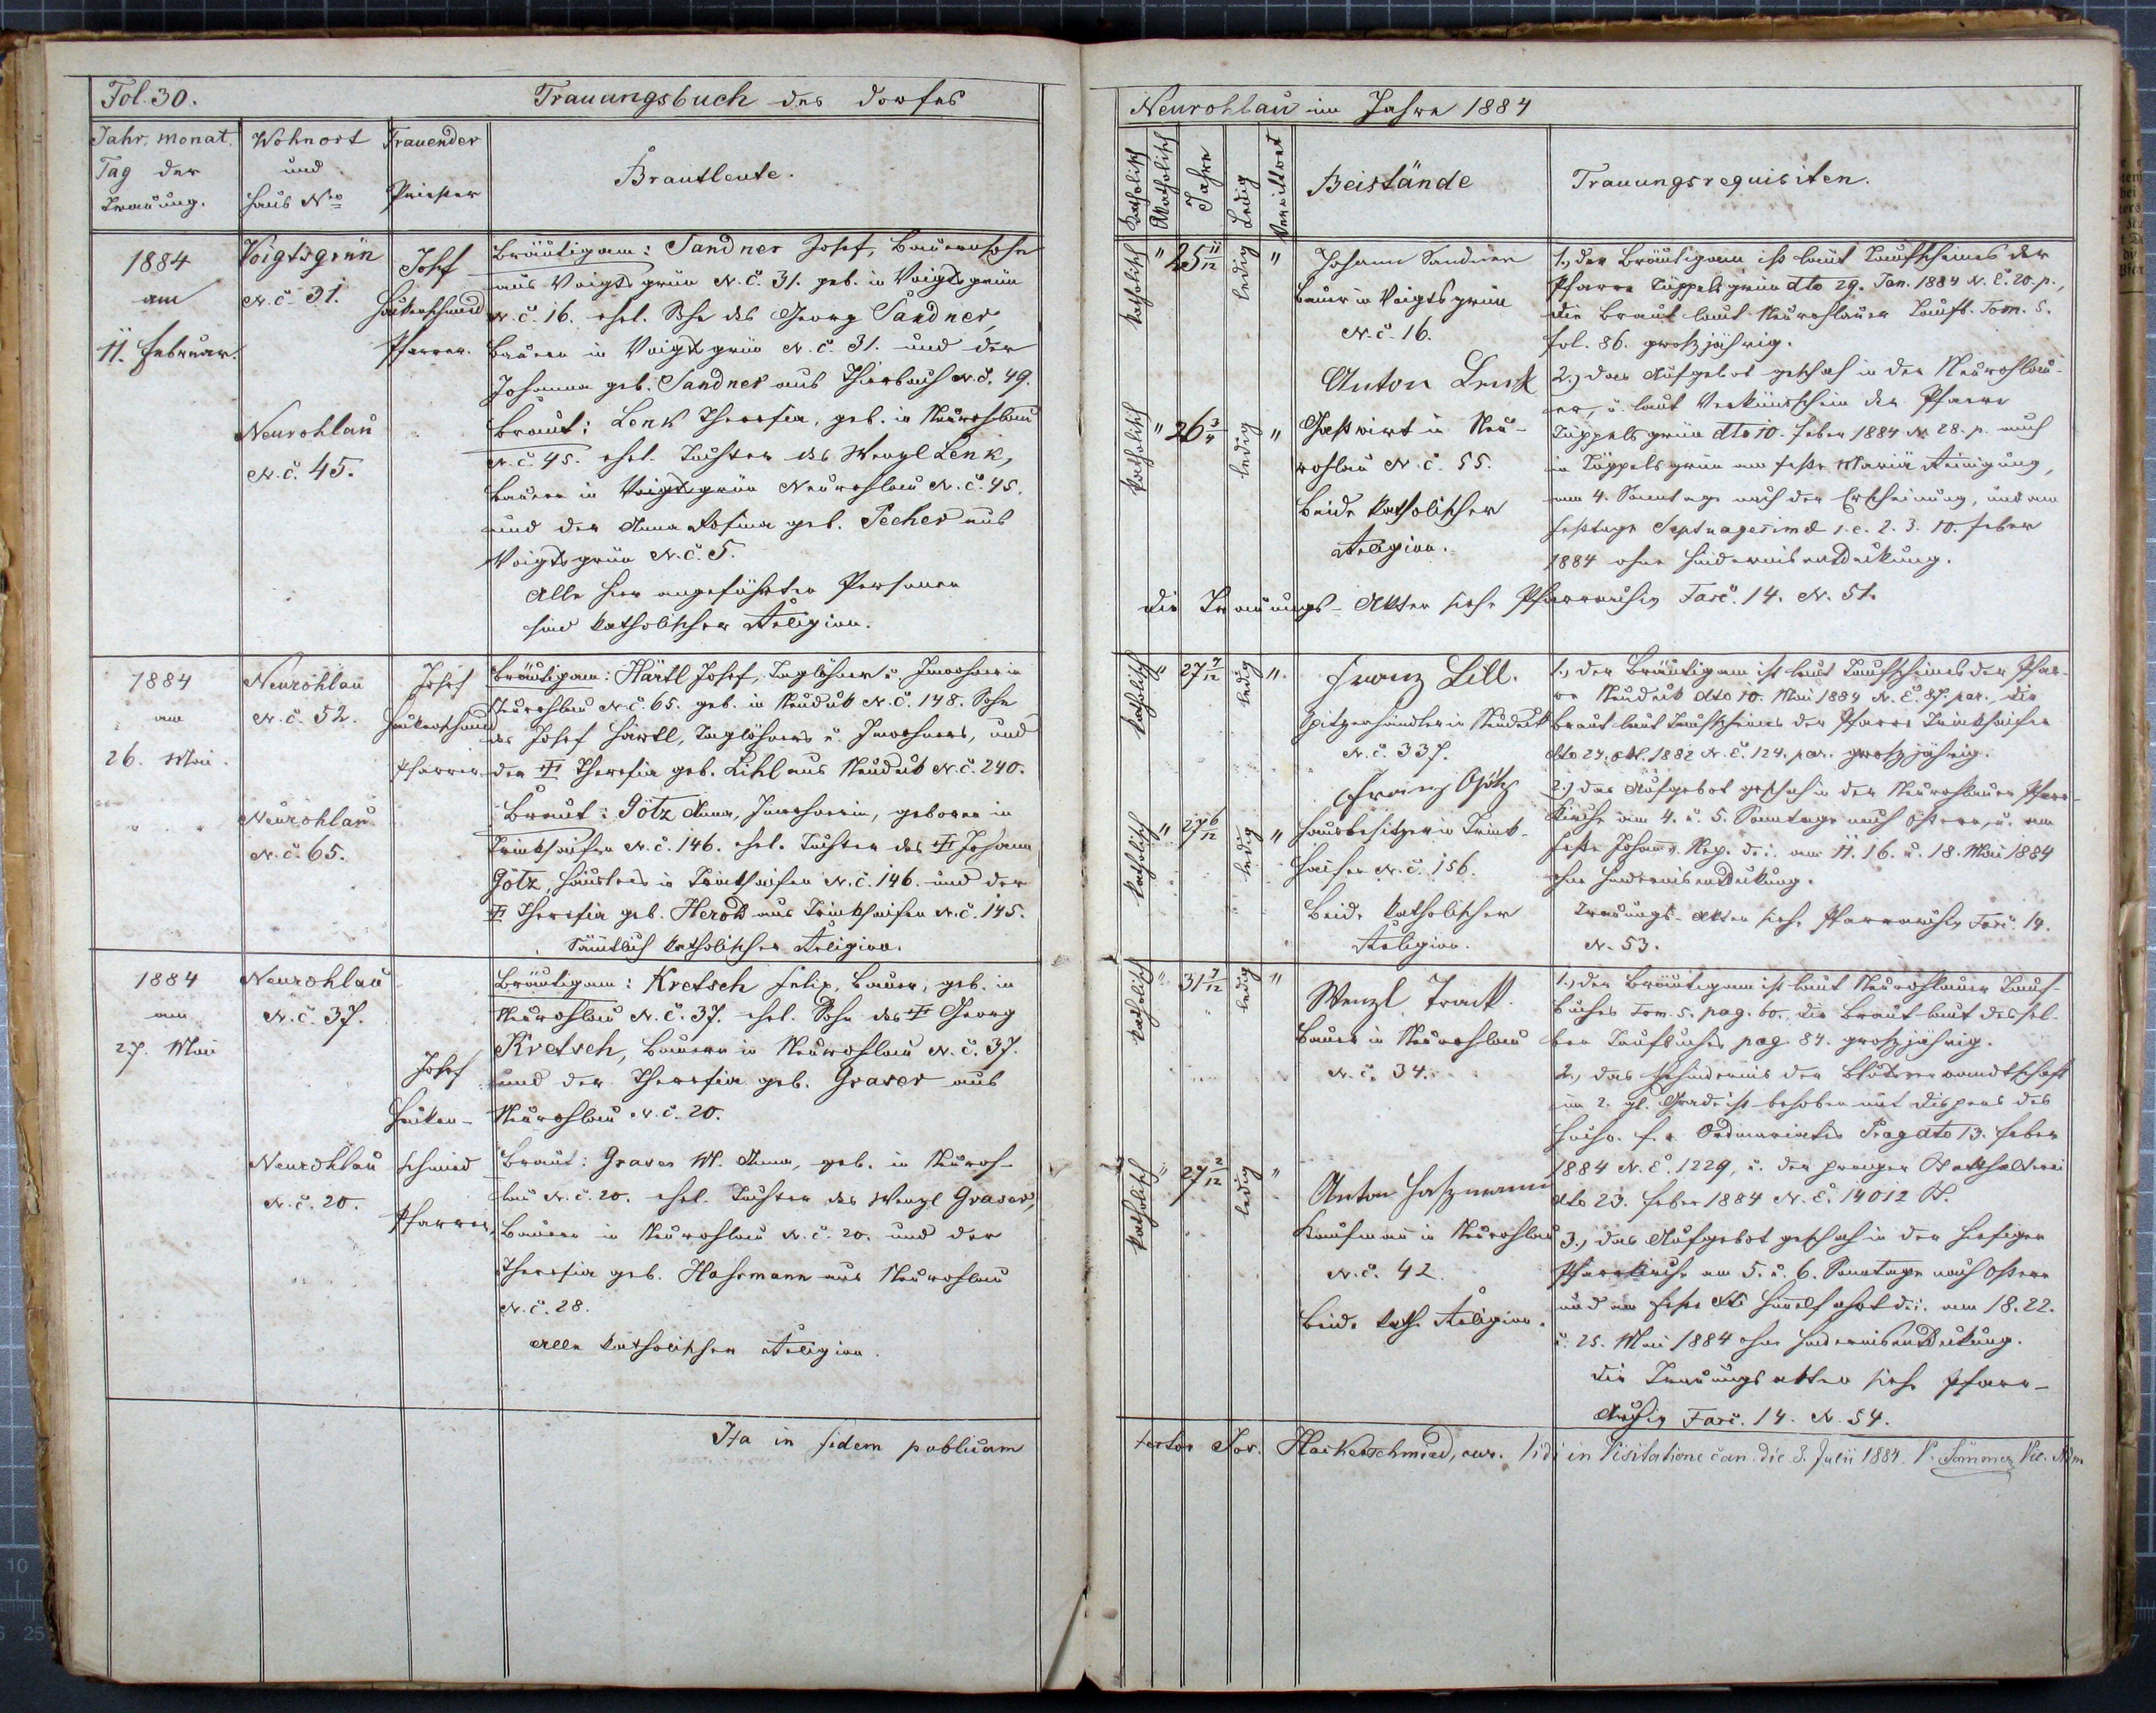 Fol. 30.
Trauungsbuch des Dorfes
Jahr, Monat,
Tag der
Trauung.
Wohnort
und
Haus Nro
Trauender
Priester
Brautleute.
1884
am
11. Februar.
Voigtsgrün
N. č. 31.
Neurohlau
N. č. 45.
Josef
Hackenschmied
Pfarrer.
Bräutigam: Sandner Josef, Bauerssohn
aus Voigtsgrün N. č. 31. geb. in Voigtsgrün
N. č. 16. ehel. Sohn des Georg Sandner,
Bauers in Voigtsgrün N. č. 31. und der
Johanna geb. Sandner aus N. č. 49.
Braut: Lenk Theresia, geb. in Neurohlau
N. č. 45. ehel. Tochter des Wenzl Lenk,
Bauers in Voigtsgrün Neurohlau N. č. 45.
und der Anna Rosina geb. Pecher aus
Voigtsgrün N. č. 5.
Alle hier angeführten Personen
sind katholischer Religion.
1884
am
26. Mai.
Neurohlau
N. č. 52.
Neurohlau
N. č. 65.
Josef
Hackenschmied
Pfarrer.
Bräutigam: Härtl Josef, Taglöhner u. Inwohner in
Neurohlau N. č. 65. geb. in Neudek N. č. 148. Sohn
des Josef Härtl, Taglöhners u. Inwohners, und
der Theresia geb. Lihl aus Neudek N. č. 240.
Braut: Götz Anna, Inwohnerin, geboren in
Trinkseifen N. č. 146. ehel. Tochter des Johann
Götz, Häuslers in Trinkseifen N. č. 146. und der
Theresia geb. Herold aus Trinkseifen N. č. 145.
Sämtlich katholischer Religion.
1884
am
27. Mai
Neurohlau
N. č. 37.
Neurohlau
N. č. 20.
Josef
Hacken-
schmied
Pfarrer,
Bräutigam: Kretsch Felix, Bauer, geb. in
Neurohlau N. č. 37. ehel. Sohn des Georg
Kretsch, Bauers in Neurohlau N. č. 37.
und der Theresia geb. Graser aus
Neurohlau N. č. 20.
Braut: Graser M. Anna, geb. in Neuroh-
lau N. č. 20. ehel. Tochter des Wenzl Graser,
Bauers in Neurohlau N. č. 20. und der
Theresia geb. Hahsmann aus Neurohlau
N. č. 28.
Alle katholischer Religion.
Ita in fidem publicam
Neurohlau im Jahre 1884
Katholisch
Akatholisch
Jahre
Ledig
Verwittwet
Beistände
Trauungsrequisiten.
katholisch " 25 11/12 ledig "
Johann Sandner
Bauer in Voigtsgrün
N. č. 16.
katholisch " 26 3/4 ledig "
Anton Lenk
Gastwirt in Neu-
rohlau N. č. 55.
Beide katholischer
Religion.
1., der Bräutigam ist laut Taufscheines der
Pfarre Tüppelsgrün dto 29. Jan. 1884 N. E. 20. p.,
die Braut laut Neurohlauer Taufb. Tom. 5.
fol. 86. großjährig.
2., das Aufgebot geschah in der Neurohlau-
er, u. laut Verkündschein der Pfarre
Tüppelsgrün dto 10. Feber 1884 N. 28. p. auch
in Tüppelsgrün am Feste Mariä Reinigung,
am 4. Sonntage nach der Erscheinung, und am
Festtage Septuagesimä i. e. 2. 3. 10. Feber
1884 ohne Hindernisentdeckung.
die Trauungs-Akten siehe Pfarrarchiv Fasc. 14. N. 51.
katholisch " 27 7/12 ledig "
Franz Lill.
Spitzenhändler in Neudek
N. č. 337.
katholisch " 27 6/12 ledig "
Franz Götz
Hausbesitzer in Trink-
seifen N. č. 156.
Beide katholischer
Religion.
1., der Bräutigam ist laut Taufscheines der Pfar-
re Neudek dto 10. Mai 1884 N. E. 87. par., die
Braut laut Taufscheines der Pfarre Trinkseifen
dto 24. Okt. 1882 N. E. 124. par. großjährig.
2., das Aufgebot geschah in der Neurohlauer Pfarr-
kirche am 4. u. 5. Sonntage nach Ostern, u. am
Feste Johann v. Nep. d. i. am 11. 16. u. 18. Mai 1884
ohne Hindernisentdeckung.
Trauungs-Akten siehe Pfarrarchiv Fasc. 14.
N. 53.
katholisch " 31 7/12 ledig "
Wenzl
Bauer in Neurohlau
N. č. 34.
katholisch " 27 2/12 ledig "
Anton Haszmann
Kaufmann in Neurohlau
N. č. 42.
Beide kath. Religion.
1., der Bräutigam ist laut Neurohlauer Tauf-
buches Tom. 5. pag. 60., die Braut laut dessel-
ben Taufbuches pag. 84. großjährig.
2., das Hindernis der Blutsverwandtschaft
im 2. gl. Grade ist behoben mit Dispens des
hochw. f. e. Ordinariates Prag dto 13. Feber
1884 N. E. 1229, u. der Prager Statthalterei
dto 23. Feber 1884 N. E. 14012 St.
3., das Aufgebot geschah in der hiesigen
Pfarrkirche am 5. u. 6. Sonntage nach Ostern
und am Feste Xti Himmelfahrt d. i. am 18. 22.
u. 25. Mai 1884 ohne Hindernisentdeckung.
die Trauungsakten siehe Pfarr-
Archiv Fasc. 14. N. 54.
testor Jos. Hackenschmied, cur. Vidi in Visitatione can. die 3. Julii 1884. P. Sommer Vic. Adm